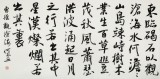 東臨碣石以觀
滄海水何澹澹
山島竦峙樹木
叢生百草豐
茂秋風蕭瑟
洪波涌起日月
之行若出其中
星漢燦爛若
出其裏
曹操觀滄海